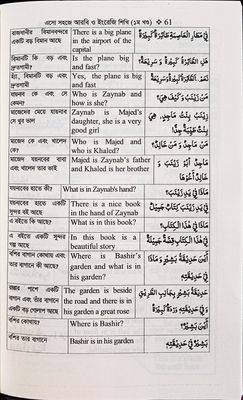 এসো সহজে আরবি ও ইংরেজি শিখি (১ম খণ্ড) ❖ 61
রাজধানীর বিমানবন্দরে একটি বড় বিমান আছে
There is a big plane in the airport of the capital
فِيْ مَطَارِ الْعَاصِمَةِ طَائِرَةٌ كَبِيْرَةٌ
বিমানটি কি বড় এবং দ্রুতগামী?
Is the plane big and fast?
هَلِ الطَّائِرَةُ كَبِيْرَةٌ وَسَرِيْعَةٌ
হ্যাঁ, বিমানটি বড় এবং দ্রুতগামী
Yes, the plane is big and fast
نَعَمْ، الطَّائِرَةُ كَبِيْرَةٌ وَسَرِيْعَةٌ
যায়নব কে এবং সে কেমন?
Who is Zaynab and how is she?
مَنْ زَيْنَبُ وَكَيْفَ هِيَ؟
যায়নব মাজেদের মেয়ে সে খুব ভাল
Zaynab is Majed's daughter, she is a very good girl
زَيْنَبُ بِنْتُ مَاجِدٍ، هِيَ بِنْتٌ طَيِّبَةٌ جِدًّا
মাজেদ কে এবং খালেদ কে?
Who is Majed and who is Khaled?
مَنْ مَاجِدٌ وَ مَنْ خَالِدٌ؟
মাজেদ যয়নবের বাবা এবং খালেদ তার ভাই
Majed is Zaynab's father and Khaled is her brother
مَاجِدٌ أَبُوْ زَيْنَبَ وَ خَالِدٌ أَخُوْهَا
যয়নবের হাতে কী?
What is in Zaynab's hand?
مَاذَا فِيْ يَدِ زَيْنَبَ؟
যয়নবের হাতে একটি সুন্দর বই আছে
There is a nice book in the hand of Zaynab
فِيْ يَدِ زَيْنَبَ كِتَابٌ جَمِيْلٌ
এ বইতে কি আছে?
What is in this book?
مَاذَا فِيْ هٰذَا الْكِتَابِ؟
এ বইতে একটি সুন্দর গল্প আছে
In this book is a beautiful story
فِيْ هٰذَا الْكِتَابِ قِصَّةٌ جَمِيْلَةٌ
বশির বাগান কোথায় এবং তার বাগানে কী আছে?
Where is Bashir's garden and what is in his garden?
أَيْنَ حَدِيْقَةُ بَشِيْرٍ وَمَاذَا فِيْ حَدِيْقَتِهِ
রাস্তার পাশে একটি বাগান এবং তাঁর বাগানে একটি বড় গোলাপ আছে
The garden is beside the road and there is in his garden a great rose
حَدِيْقَةُ بَشِيْرٍ بِجَانِبِ الطَّرِيْقِ وَ فِيْ حَدِيْقَتِهِ وَرْدَةٌ كَبِيْرَةٌ
বশির কোথায়?
Where is Bashir?
أَيْنَ بَشِيْرٌ؟
বশির তার বাগানে
Bashir is in his garden
بَشِيْرٌ فِيْ حَدِيْقَتِهِ